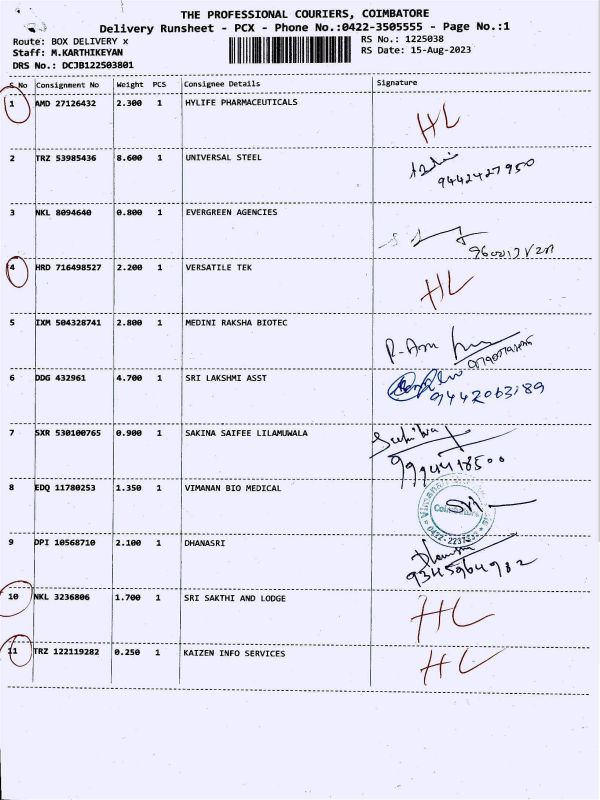 THE PROFESSIONAL COURIERS, COIMBATORE
Delivery Runsheet - PCX - Phone No.:0422-3505555 - Page No.:1
Route: BOX DELIVERY x RS No.: 1225038
Staff: M.KARTHIKEYAN RS Date: 15-Aug-2023
DRS No.: DCJB122503801
S No Consignment No Weight PCS Consignee Details Signature
1 AMD 27126432 2.300 1 HYLIFE PHARMACEUTICALS
HL
2 TRZ 53985436 8.600 1 UNIVERSAL STEEL
9442427950
3 NKL 8094640 0.800 1 EVERGREEN AGENCIES
4 HRD 716498527 2.200 1 VERSATILE TEK
HL
5 IXM 504328741 2.800 1 MEDINI RAKSHA BIOTEC
6 DDG 432961 4.700 1 SRI LAKSHMI ASST
9442063189
7 SXR 530100765 0.900 1 SAKINA SAIFEE LILAMUWALA
9994418500
8 EDQ 11780253 1.350 1 VIMANAN BIO MEDICAL
9 DPI 10568710 2.100 1 DHANASRI
9345964982
10 NKL 3236806 1.700 1 SRI SAKTHI AND LODGE
HL
11 TRZ 122119282 0.250 1 KAIZEN INFO SERVICES
HL